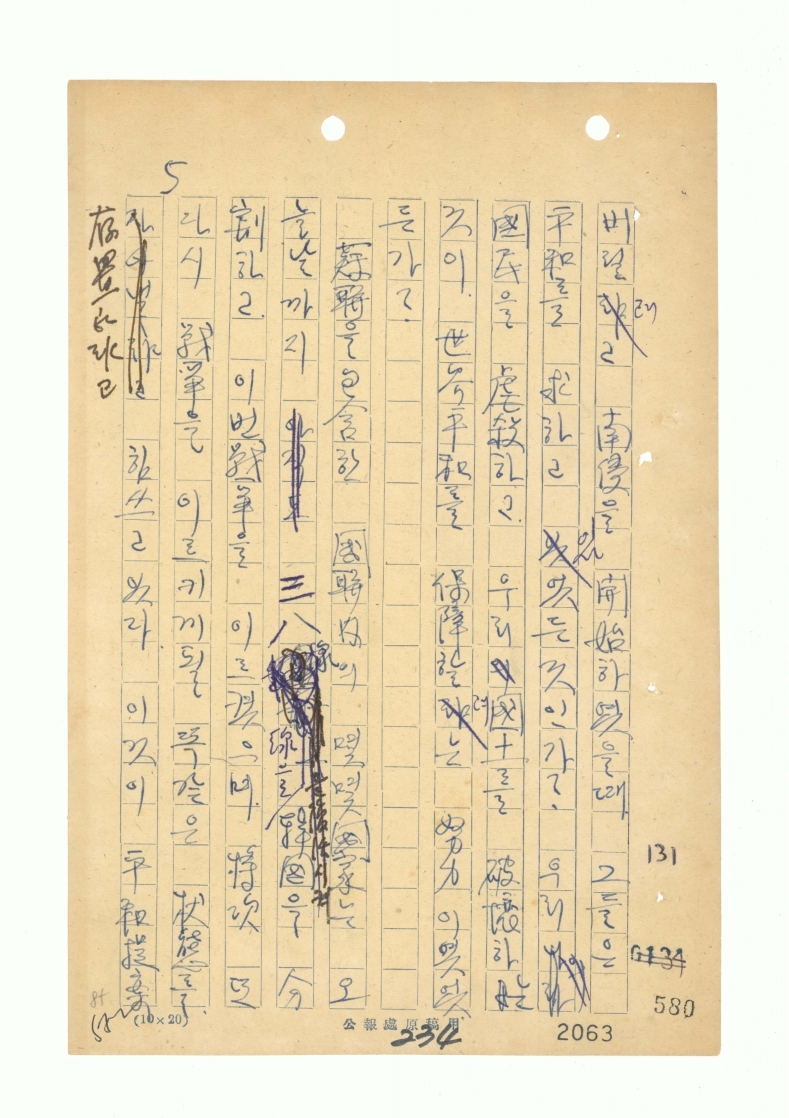 5
버릴려고 南侵을 開始하였을때 그들은
平和를 求하고 있었든것인가? 우리
國民을 虐殺하고. 우리 國土를 破壞하는
것이. 世界平和를 保障할려는 努力이였었
든가?
蘇聯을 包含한 國聯內의 몇몇 國家는 오
늘날까지 三八線을 韓國을 分
割하고. 이번 戰爭을 이르켰으며. 將次 또
다시 戰爭을 이르키게될 똑같은 狀態를.
存置시키려고 힘쓰고 있다. 이것이 平和提案
131
580
2063
234
公報處原稿用
(10×20)